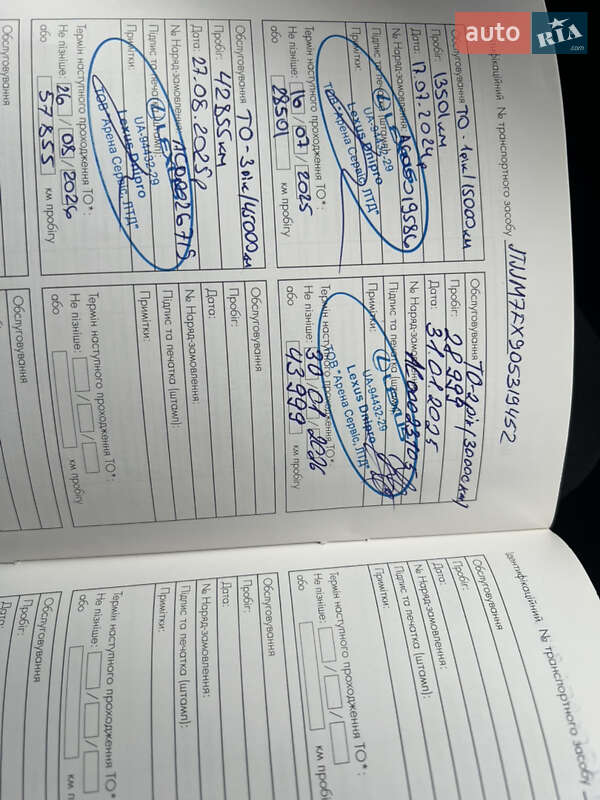 auto RIA.com
Ідентифікаційний № транспортного засобу JTJJM7FX905319452
Обслуговування ТО - 1рік/15000км
Пробіг: 13501км
Дата: 17.07.2024р
№ Наряд-замовлення: AC00019586
Підпис та печатка (штамп):
Примітки:
LEXUS
UA-94432-29
Lexus Dnipro
ТОВ "Арена Сервіс, ЛТД"
Термін наступного проходження ТО*:
Не пізніше: 16 / 07 / 2025
або 28501 км пробігу
Обслуговування ТО-2рік/30000км
Пробіг: 28999
Дата: 31.01.2025
№ Наряд-замовлення: AC00023703
Підпис та печатка (штамп):
Примітки:
LEXUS
UA-94432-29
Lexus Dnipro
ТОВ "Арена Сервіс, ЛТД"
Термін наступного проходження ТО*:
Не пізніше: 30 / 01 / 2026
або 43999 км пробігу
Обслуговування ТО-3рік/45000км
Пробіг: 42855км
Дата: 27.08.2025р
№ Наряд-замовлення: AC00026715
Підпис та печатка (штамп):
Примітки:
LEXUS
UA-94432-29
Lexus Dnipro
ТОВ "Арена Сервіс, ЛТД"
Термін наступного проходження ТО*:
Не пізніше: 26 / 08 / 2026
або 57855 км пробігу
Обслуговування
Пробіг:
Дата:
№ Наряд-замовлення:
Підпис та печатка (штамп):
Примітки:
Термін наступного проходження ТО*:
Не пізніше: / /
або км пробігу
Обслуговування
Обслуговування
Ідентифікаційний № транспортного засобу
Обслуговування
Пробіг:
Дата:
№ Наряд-замовлення:
Підпис та печатка (штамп):
Примітки:
Термін наступного проходження ТО*:
Не пізніше: / /
або км пробігу
Обслуговування
Пробіг:
Дата:
№ Наряд-замовлення:
Підпис та печатка (штамп):
Примітки:
Термін наступного проходження ТО*
Не пізніше: / /
або км
Обслуговування
Пробіг:
Дата: